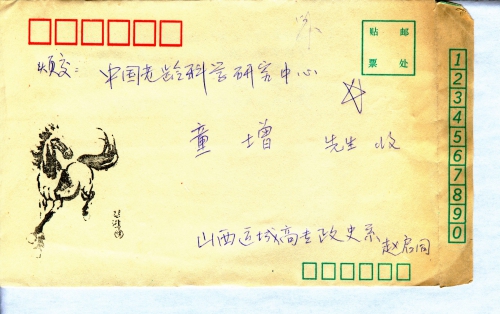 贴 邮
票 处
烦交：中国老龄科学研究中心
童增 先生 收
山西运城高专政史系 赵启同
1
2
3
4
5
6
7
8
9
0